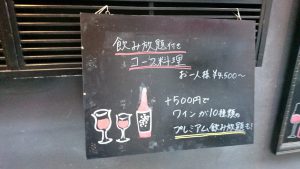 飲み放題付き
コース料理
お一人様 ¥4,500〜
+500円で
ワインが10種類の
プレミアム飲み放題も!